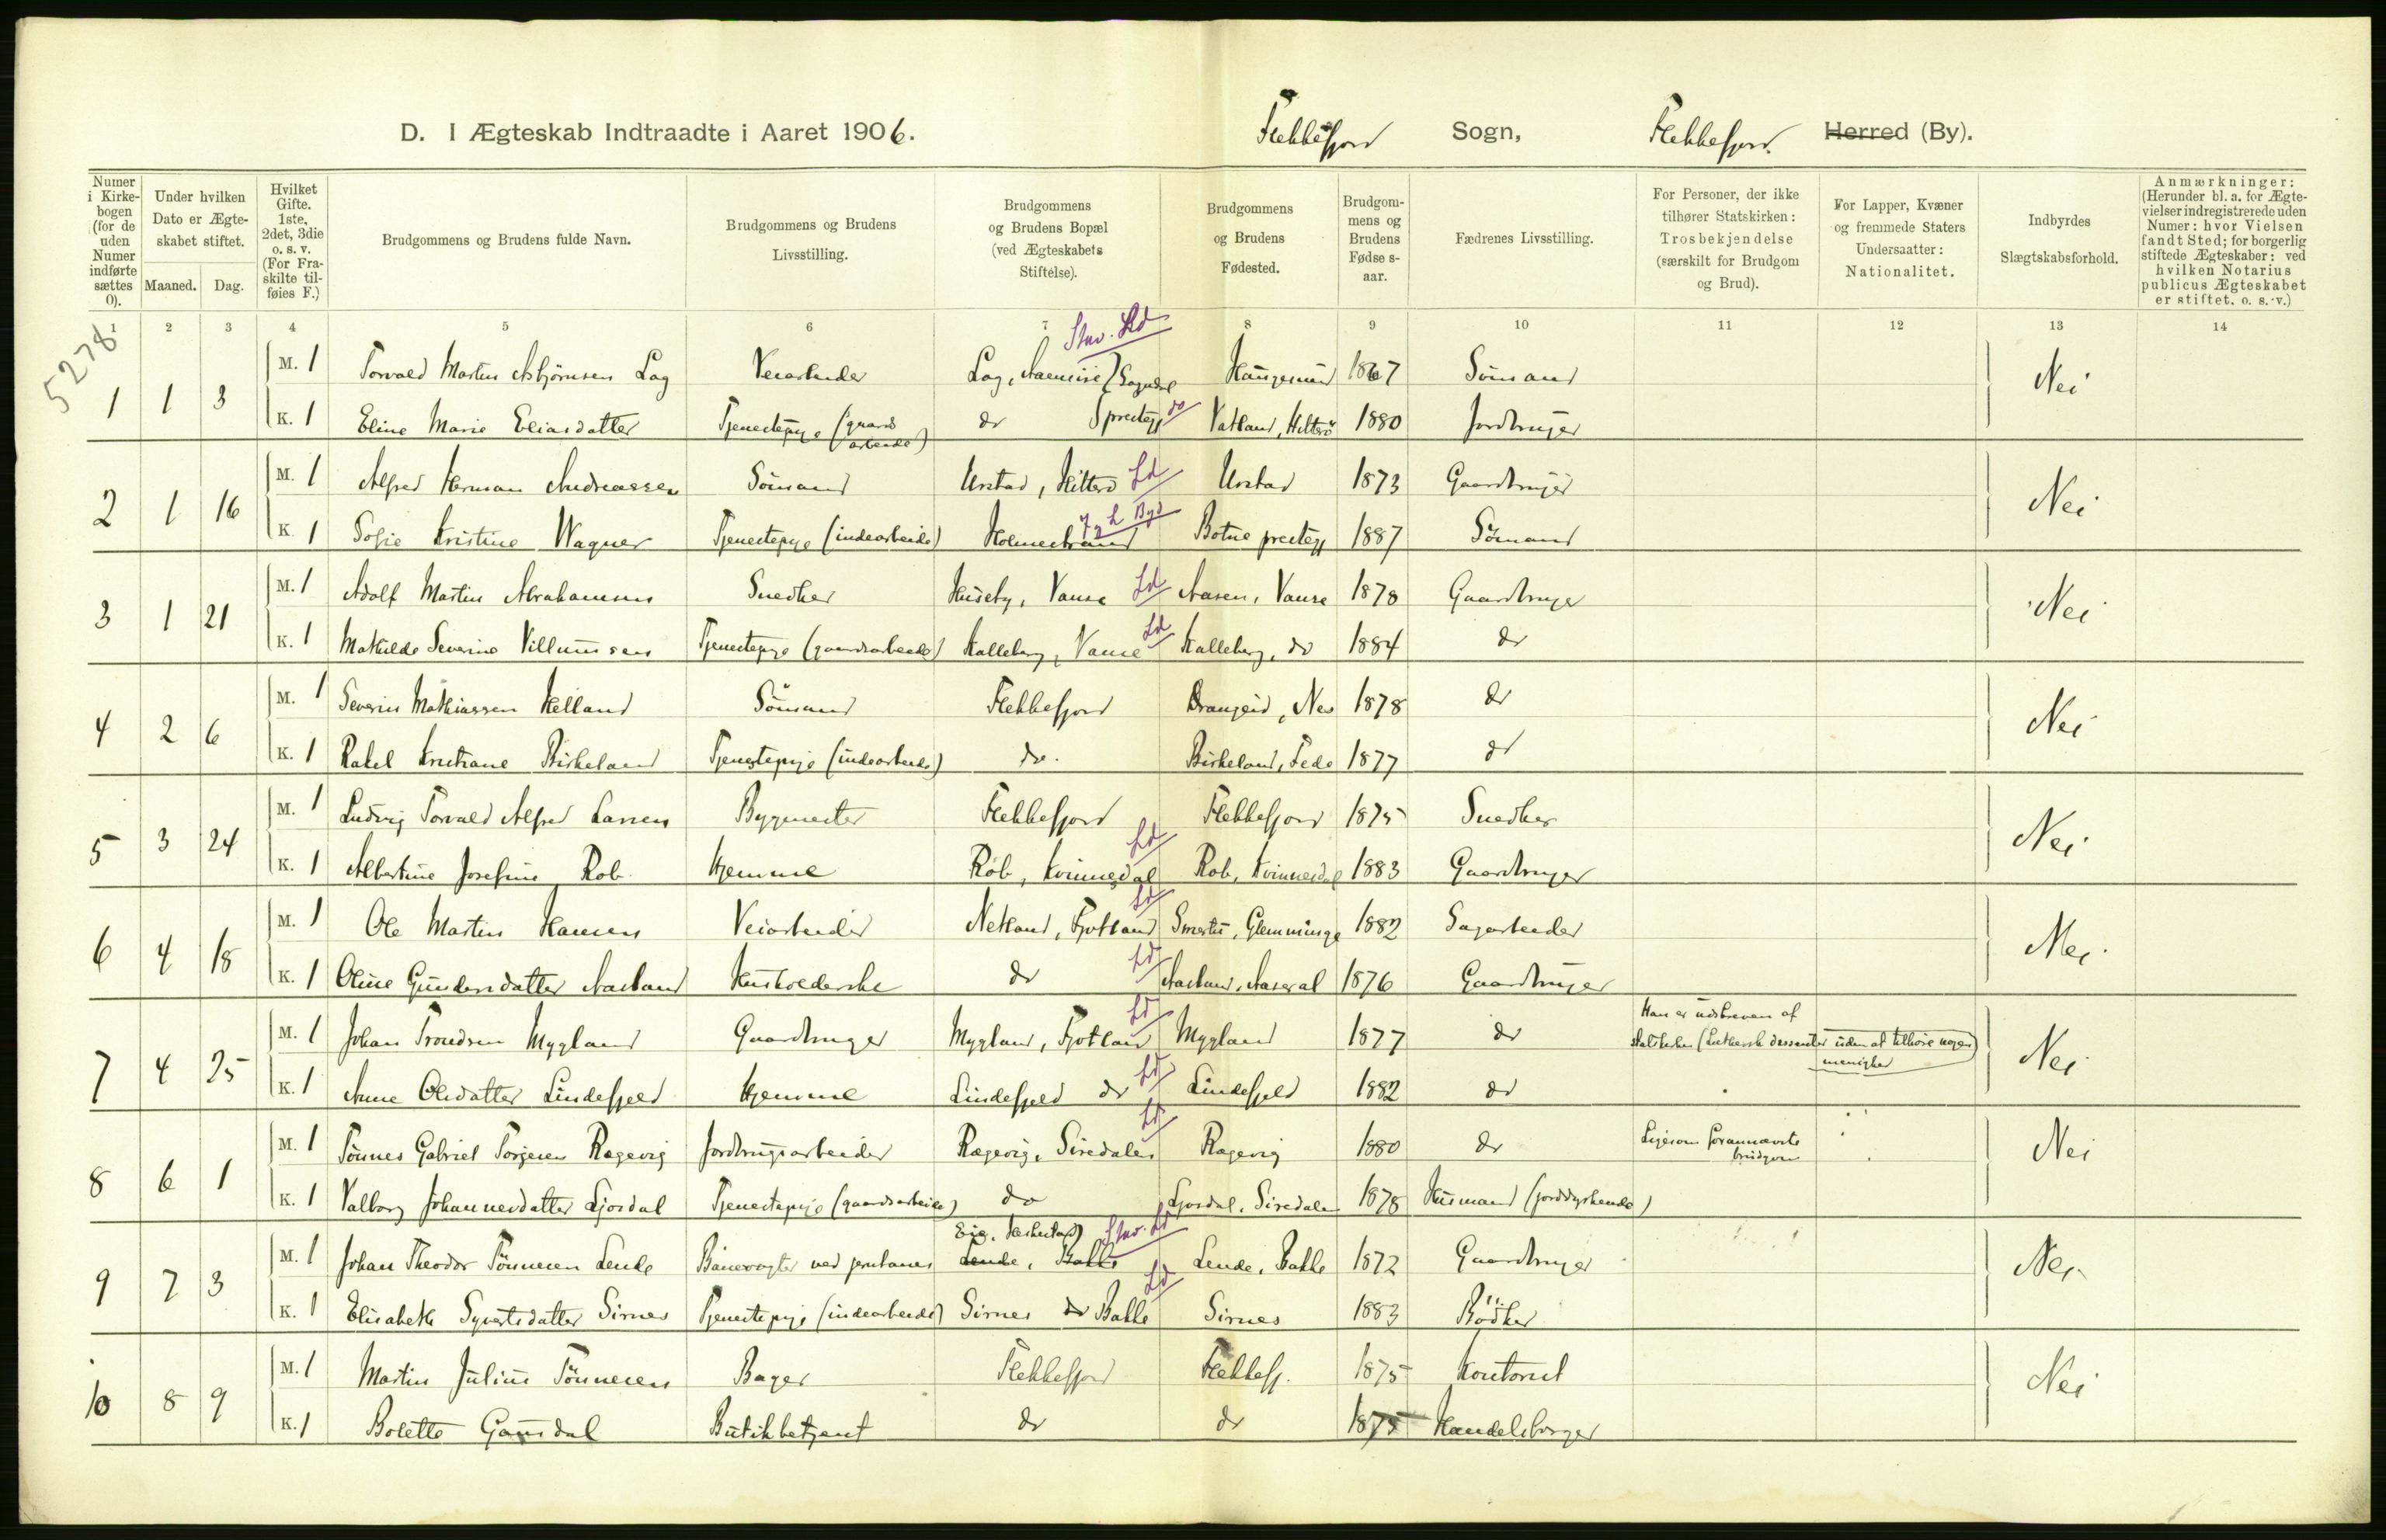 D. I Ægteskab Indtraadte i Aaret 1906. Flekkefjord Sogn, Flekkefjord. Herred (By).
Numer i Kirkebogen (for de uden Numer indførte sættes 0).
Under hvilken Dato er Ægteskabet stiftet.
Maaned. Dag.
Hvilket Gifte. 1ste, 2det, 3die o. s. v. (For Fraskilte tilføies F.)
Brudgommens og Brudens fulde Navn.
Brudgommens og Brudens Livsstilling.
Brudgommens og Brudens Bopæl (ved Ægteskabets Stiftelse).
Brudgommens og Brudens Fødested.
Brudgommens og Brudens Fødselsaar.
Fædrenes Livsstilling.
For Personer, der ikke tilhører Statskirken: Trosbekjendelse (særskilt for Brudgom og Brud).
For Lapper, Kvæner og fremmede Staters Undersaatter: Nationalitet.
Indbyrdes Slægtskabsforhold.
Anmærkninger: (Herunder bl. a. for Ægtevielser indregistrerede uden Numer: hvor Vielsen fandt Sted; for borgerlig stiftede Ægteskaber: ved hvilken Notarius publicus Ægteskabet er stiftet. o. s. v.)
1 2 3 4 5 6 7 8 9 10 11 12 13 14
5278
Stav. Ld
1 1 3 M. 1 Torvald Martin Asbjörnsen Log Veiarbeider Log, Aaensire Sogndal Haugesund 1867 Sömand Nei
K. 1 Eline Marie Eliasdatter Tjenestepige (gaardsarbeide) do prestegj do Vatland, Hitterö 1880 Jordbruger
2 1 16 M. 1 Alfred Herman Andreassen Sömand Urstad, Hitterö Ld Urstad 1873 Gaardbruger Nei
K. 1 Sofie Kristine Wagner Tjenestepige (indearbeide) Holmestrand Botne prestegj 1887 Sömand
3 1 21 M. 1 Adolf Martin Abrahamsen Snedker Huseby, Vanse Ld Aasen, Vanse 1878 Gaardbruger Nei
K. 1 Mathilde Severine Villumsen Tjenestepige (gaardsarbeide) Kalleberg, Vanse Ld Kalleberg, do 1884 do
4 2 6 M. 1 Severin Mathiassen Helland Sömand Flekkefjord Drangeid, Nes 1878 do Nei
K. 1 Rakel Kristiane Birkeland Tjenestepige (indearbeide) do. Birkeland, Fede 1877 do
5 3 24 M. 1 Ludvig Torvald Alfred Larsen Bygmester Flekkefjord Flekkefjord 1875 Snedker Nei
K. 1 Albertine Josefine Rob Hjemme Rob, Kvinnesdal Ld Rob, Kvinnesdal 1883 Gaardbruger
6 4 18 M. 1 Ole Martin Hansen Veiarbeider Netland, Fjotland Ld Smertu, Glemminge 1882 Sagarbeider Nei
K. 1 Oline Gundersdatter Aasland Husholderske do Ld Aasland, Aaseral 1876 Gaardbruger
7 4 25 M. 1 Johan Trondsen Mygland Gaardbruger Mygland, Fjotland Ld Mygland 1877 do Han er udskreven af statskirken (Luthersk dissenter uden at tilhöre nogen menighed) Nei
K. 1 Anne Olsdatter Lindefjeld Hjemme Lindefjeld do Ld Lindefjeld 1882 do
8 6 1 M. 1 Tönnes Gabriel Torjesen Rægevig Jordbrugsarbeider Rægevig, Siredalen Ld Rægevig 1880 do Ligesom forannævnte brudgom Nei
K. 1 Valborg Johannesdatter Ljosdal Tjenestepige (gaardsarbeide) do Ljosdal, Siredalen 1878 Husmand (jorddyrkende)
9 7 3 M. 1 Johan Theodor Tönnesen Lende Banevogter ved jernbanen Eig. Heskestad Lende, Bakke Stav. Ld Lende, Bakke 1872 Gaardbruger Nei
K. 1 Elisabeth Syvertsdatter Sirnes Tjenestepige (indearbeide) Sirnes do Bakke Ld Sirnes 1883 Bödker
10 8 9 M. 1 Martin Julius Tönnesen Bager Flekkefjord Flekkefj. 1875 Kontorist Nei
K. 1 Bolette Gausdal Butikbetjent do do 1875 Handelsborger